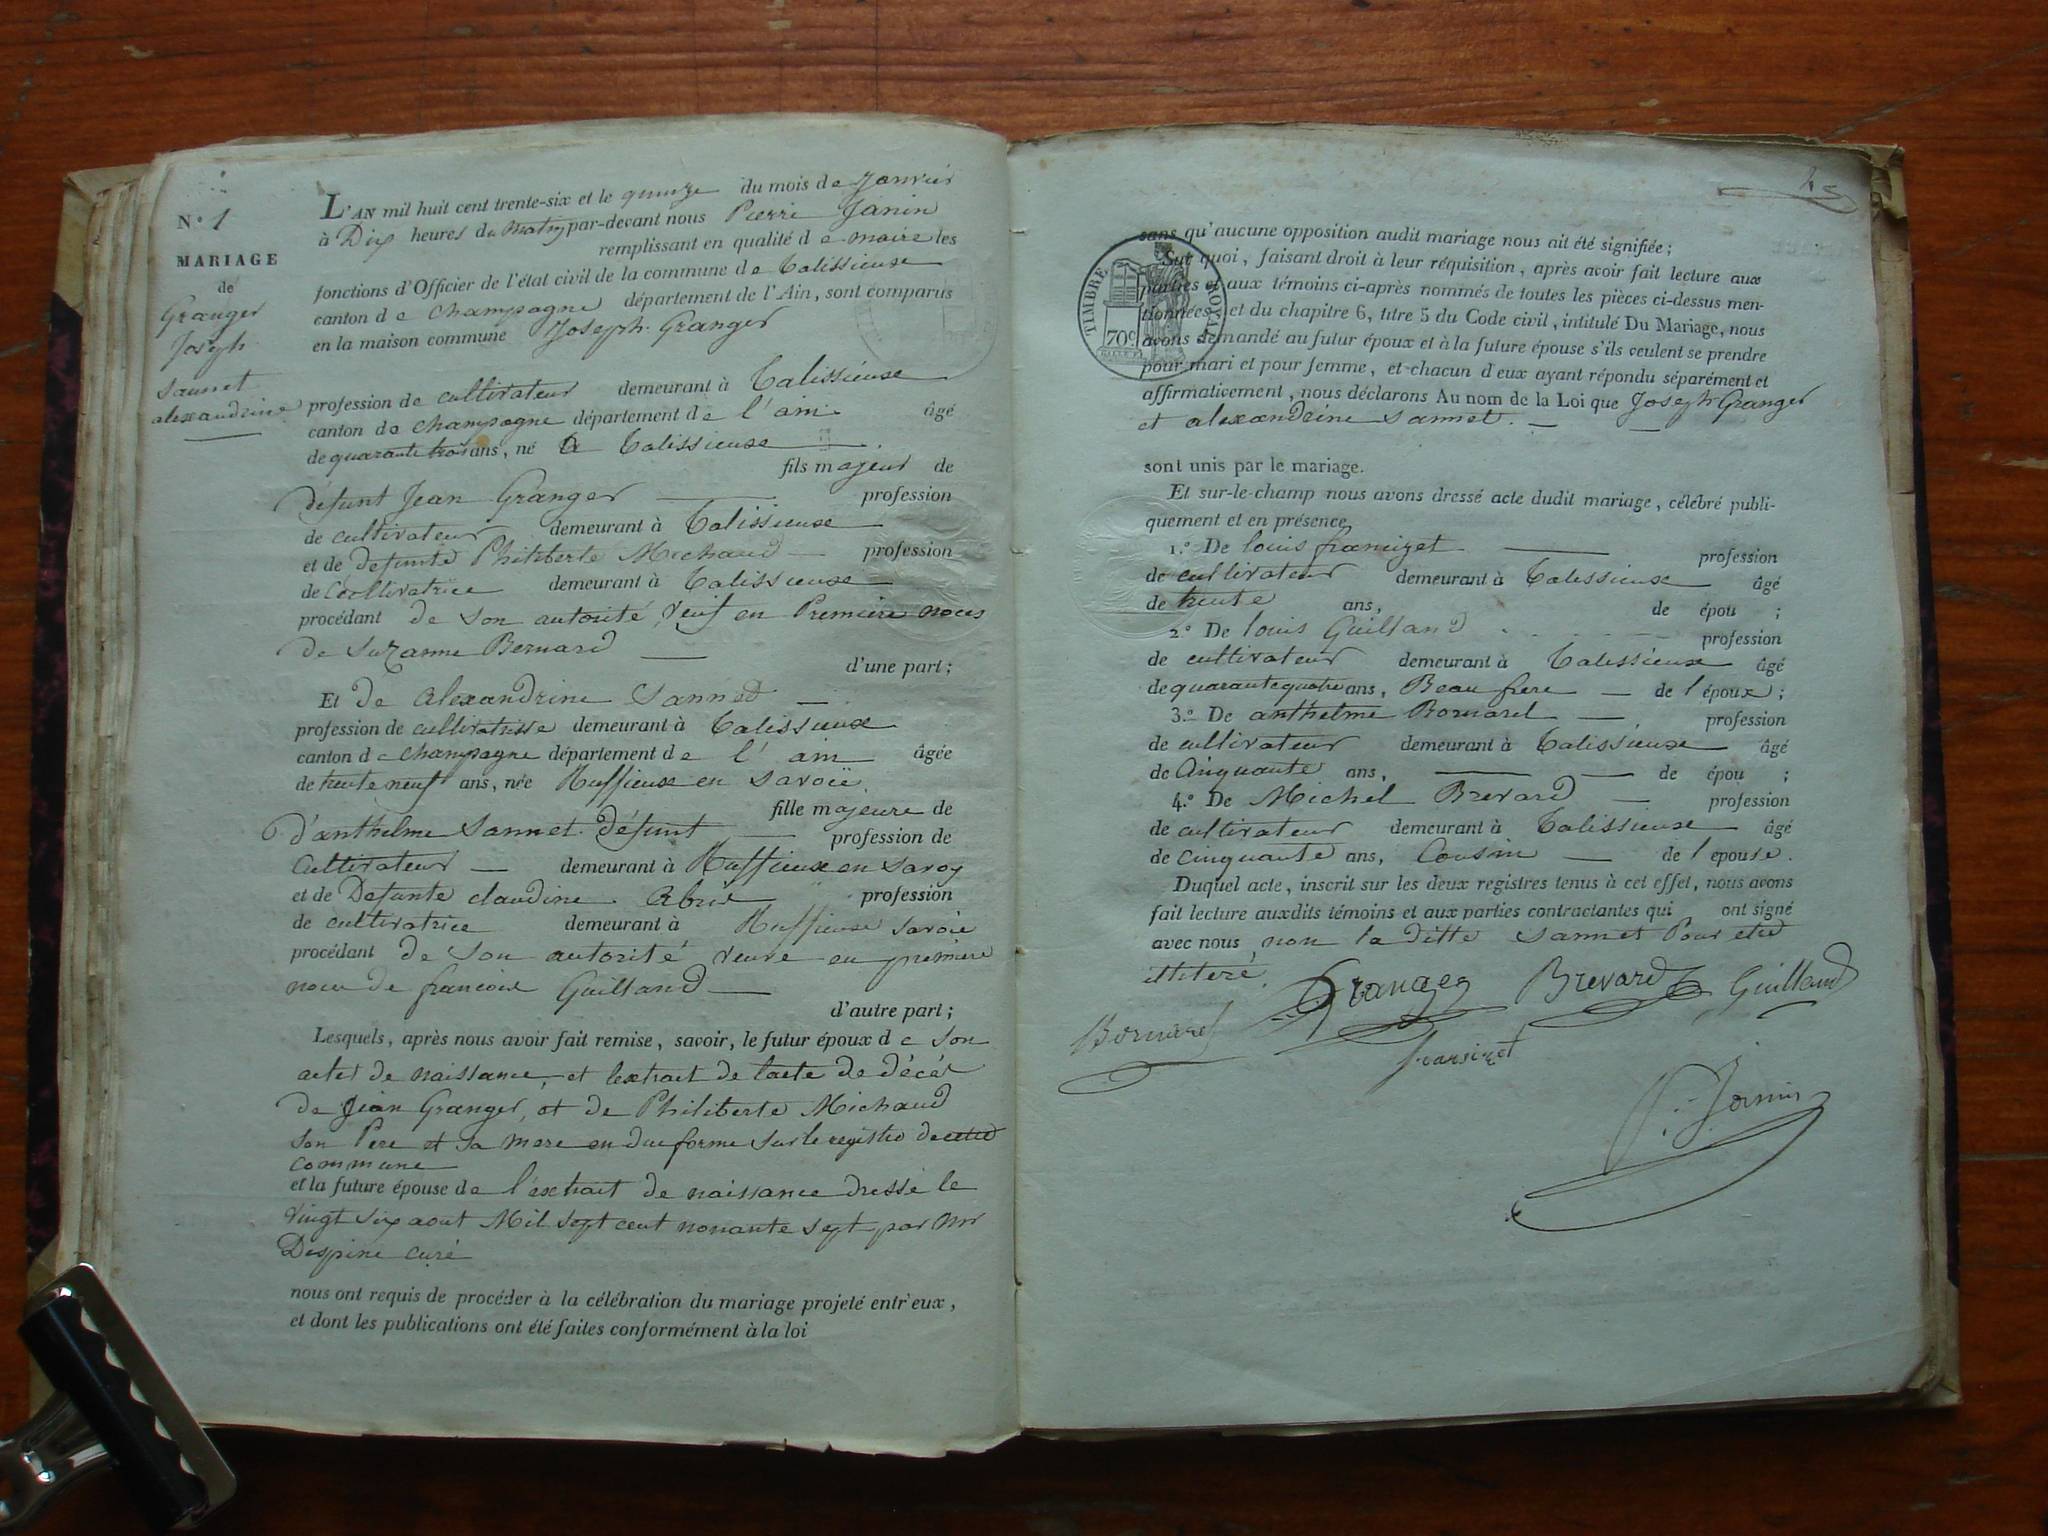 N.° 1
MARIAGE
de
Granger
Joseph
Sannet
alexandrine
L'AN mil huit cent trente-six et le quinze du mois de Janvier
à Dix heures du Matin par-devant nous Pierre Janin
remplissant en qualité de maire les
fonctions d'Officier de l'état civil de la commune de Talissieux
canton de Champagne département de l'Ain, sont comparus
en la maison commune Joseph Granger
profession de cultivateur demeurant à Talissieux
canton de Champagne département de l'ain âgé
de quarante trois ans, né a Talissieux
fils majeur de
défunt Jean Granger profession
de cultivateur demeurant à Talissieux
et de defunte Philiberte Michaud profession
de Cocltivatrice demeurant à Talissieux
procédant de son autorité, Veuf en Première noces
de Suzanne Bernard
d'une part;
Et de alexandrine Sannet
profession de cultivatrisse demeurant à Talissieux
canton de Champagne département de l'ain âgée
de trente neuf ans, née Ruffieux en Savoïe
fille majeure de
d'anthelme Sannet défunt profession de
Cultivateur demeurant à Ruffieux en Savoy
et de Defunte claudine profession
de cultivatrice demeurant à Ruffieux Savoie
procédant de son autorité veuve en première
noce de francois Guilland
d'autre part;
Lesquels, après nous avoir fait remise, savoir, le futur époux de son
actes de naissance, et lextrait de lacte de décés
de Jean Granger, et de Philiberte Michaud
son Pere et sa mere en due forme sur le registre de cette
commune
et la future épouse de l'extrait de naissance dressé le
vingt six aout Mil sept cent nonante sept par Mr
Despine curé
nous ont requis de procéder à la célébration du mariage projeté entr'eux,
et dont les publications ont été faites conformément à la loi
TIMBRE ROYAL
70c
sans qu'aucune opposition audit mariage nous ait été signifiée;
Sur quoi, faisant droit à leur réquisition, après avoir fait lecture aux
parties et aux témoins ci-après nommés de toutes les pièces ci-dessus men-
tionnées, et du chapitre 6, titre 5 du Code civil, intitulé Du Mariage, nous
avons demandé au futur époux et à la future épouse s'ils veulent se prendre
pour mari et pour femme, et chacun d'eux ayant répondu séparément et
affirmativement, nous déclarons Au nom de la Loi que Joseph Granger
et alexandrine Sannet.
sont unis par le mariage.
Et sur-le-champ nous avons dressé acte dudit mariage, célébré publi-
quement et en présence
1.° De louis francizet profession
de cultivateur demeurant à Talissieux âgé
de trente ans, de épou ;
2.° De louis Guilland profession
de cultivateur demeurant à Talissieux âgé
de quarante quatre ans, Beau frere de l'époux;
3.° De anthelme Bornarel profession
de cultivateur demeurant à Talissieux âgé
de Cinquante ans, de épou ;
4.° De Michel Brevard profession
de cultivateur demeurant à Talissieux âgé
de cinquante ans, Cousin de l'epouse.
Duquel acte, inscrit sur les deux registres tenus à cet effet, nous avons
fait lecture auxdits témoins et aux parties contractantes qui ont signé
avec nous non la ditte Sannet Pour etre
illiteré.
Granger Brevard Guilland
Bornarel
fransizet
P. Janin